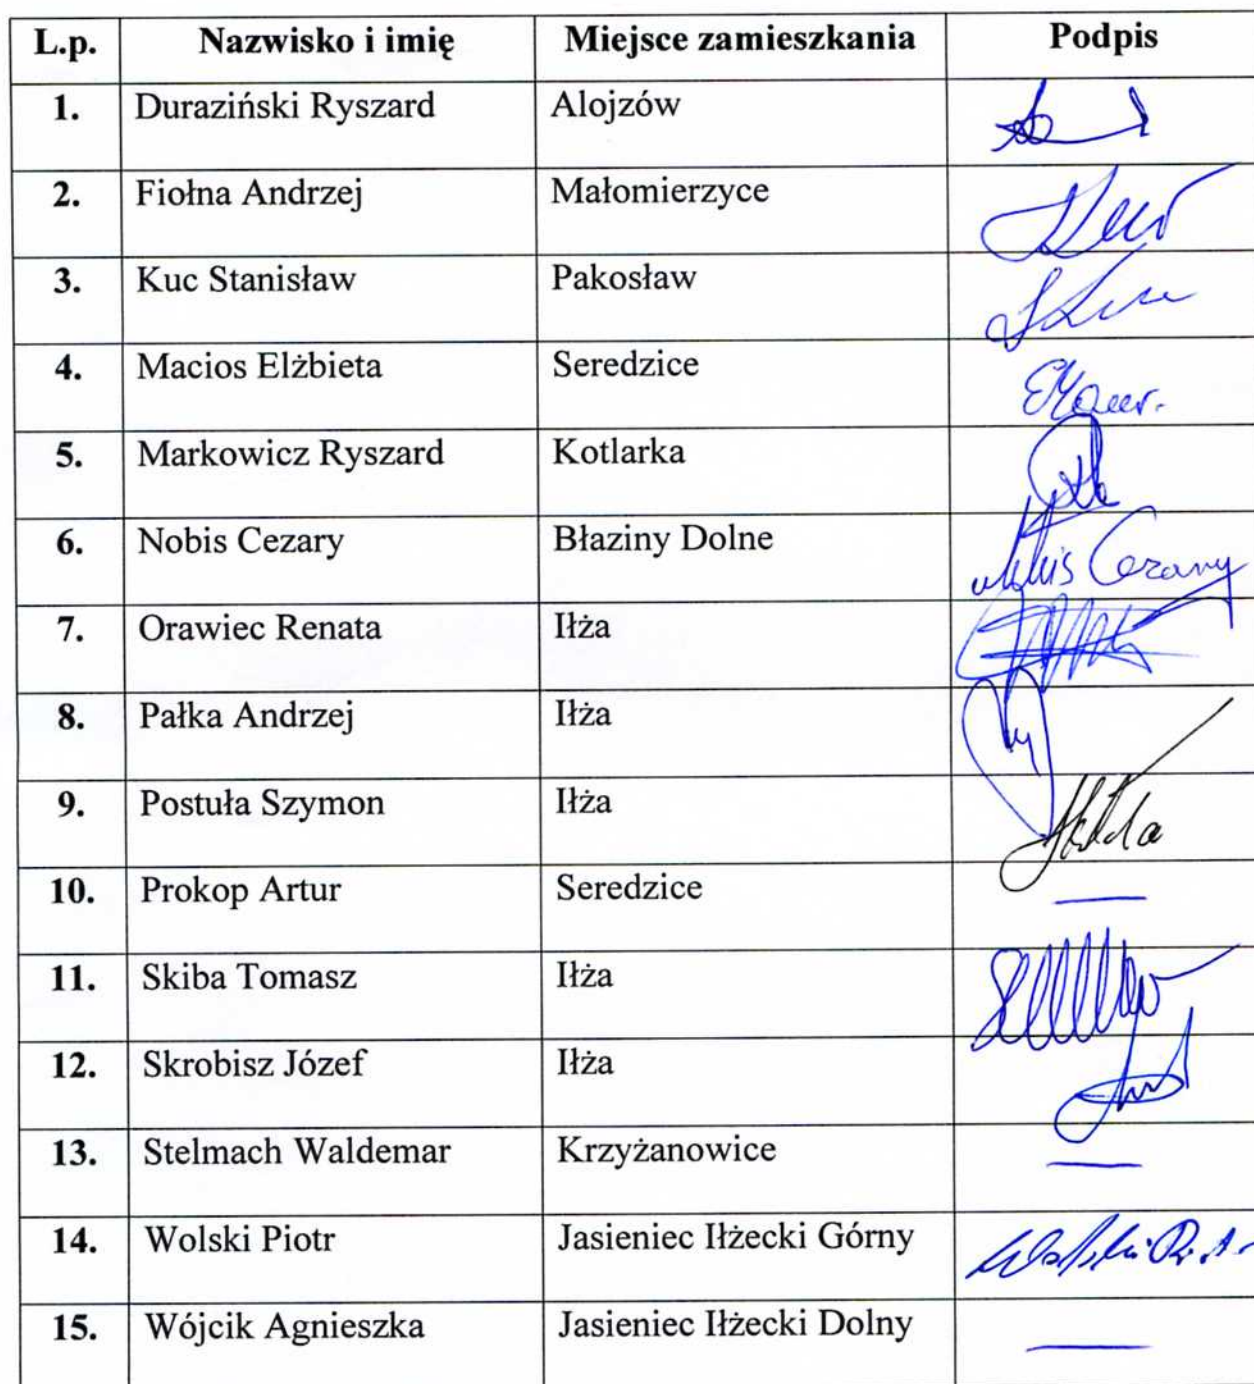 L.p. Nazwisko i imię Miejsce zamieszkania Podpis
1. Duraziński Ryszard Alojzów
2. Fiołna Andrzej Małomierzyce
3. Kuc Stanisław Pakosław
4. Macios Elżbieta Seredzice
5. Markowicz Ryszard Kotlarka
6. Nobis Cezary Błaziny Dolne Nobis Cezary
7. Orawiec Renata Iłża
8. Pałka Andrzej Iłża
9. Postuła Szymon Iłża
10. Prokop Artur Seredzice —
11. Skiba Tomasz Iłża
12. Skrobisz Józef Iłża
13. Stelmach Waldemar Krzyżanowice —
14. Wolski Piotr Jasieniec Iłżecki Górny
15. Wójcik Agnieszka Jasieniec Iłżecki Dolny —